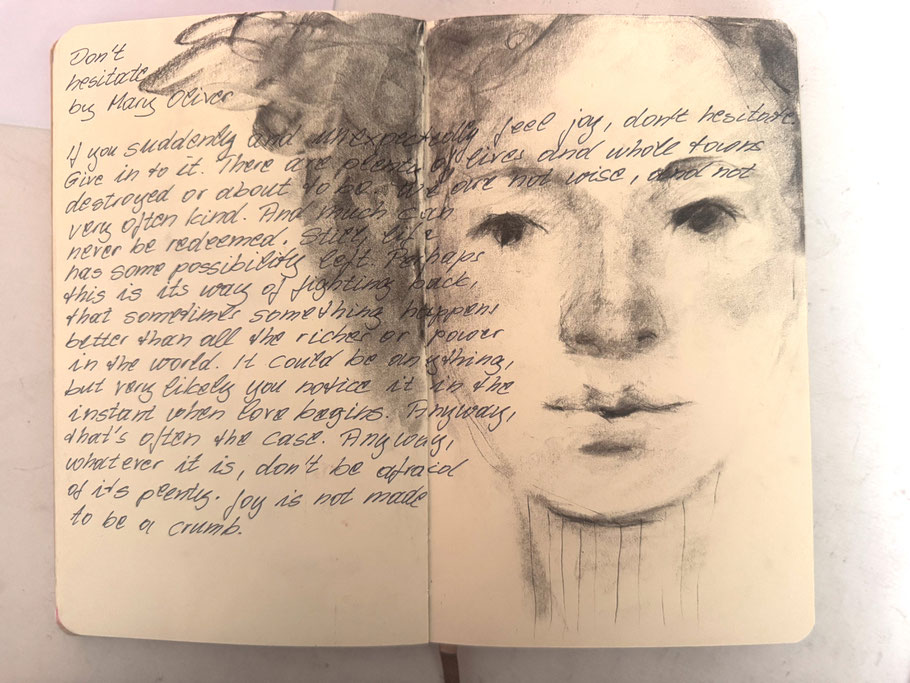 Don't
hesitate
by Mary Oliver
If you suddenly and unexpectedly feel joy, don't hesitate
Give in to it. There are plenty of lives and whole towns
destroyed or about to be. We are not wise, and not
very often kind. And much can
never be redeemed. Still life
has some possibility left. Perhaps
this is its way of fighting back,
that sometimes something happens
better than all the riches or power
in the world. It could be anything,
but very likely you notice it in the
instant when love begins. Anyway,
that's often the case. Anyway,
whatever it is, don't be afraid
of its plenty. Joy is not made
to be a crumb.